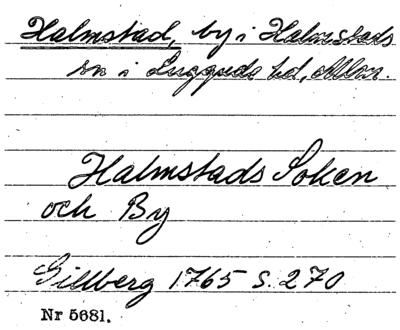 Halmstad, by i Halmstads
sn i Luggude hd, Mlm.
Halmstads Soken
och By
Gillberg 1765 S. 270
Nr 5681.